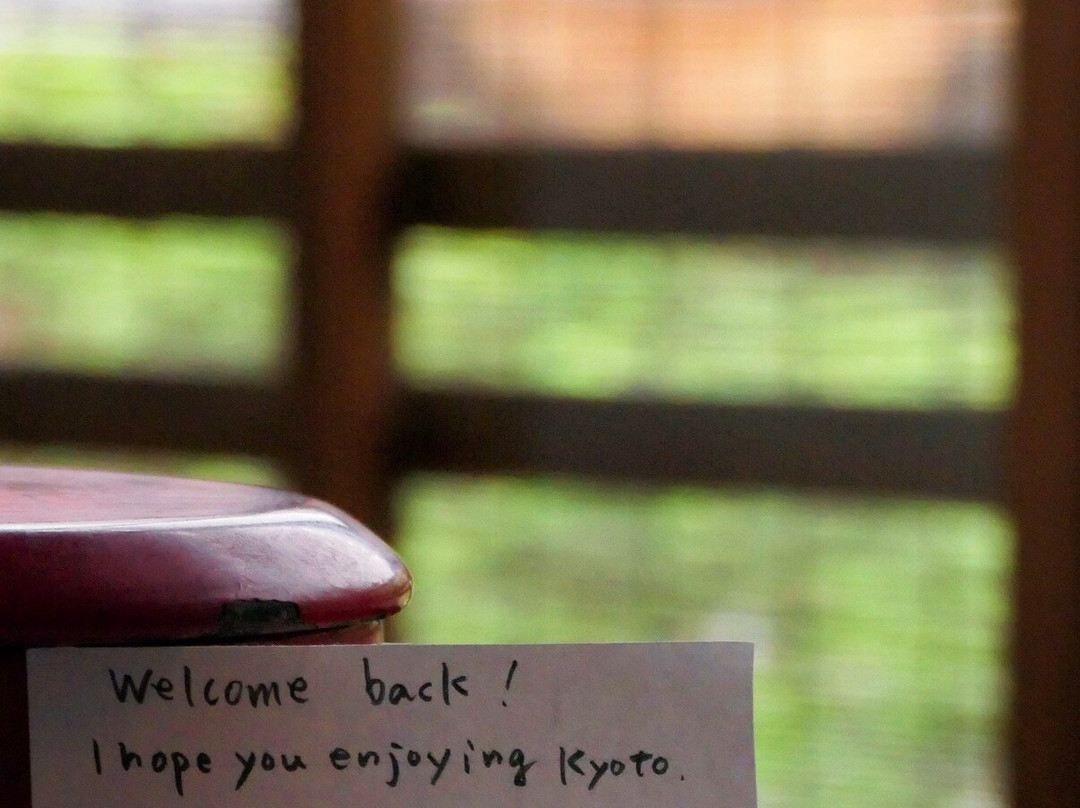 Welcome back!
I hope you enjoying Kyoto.